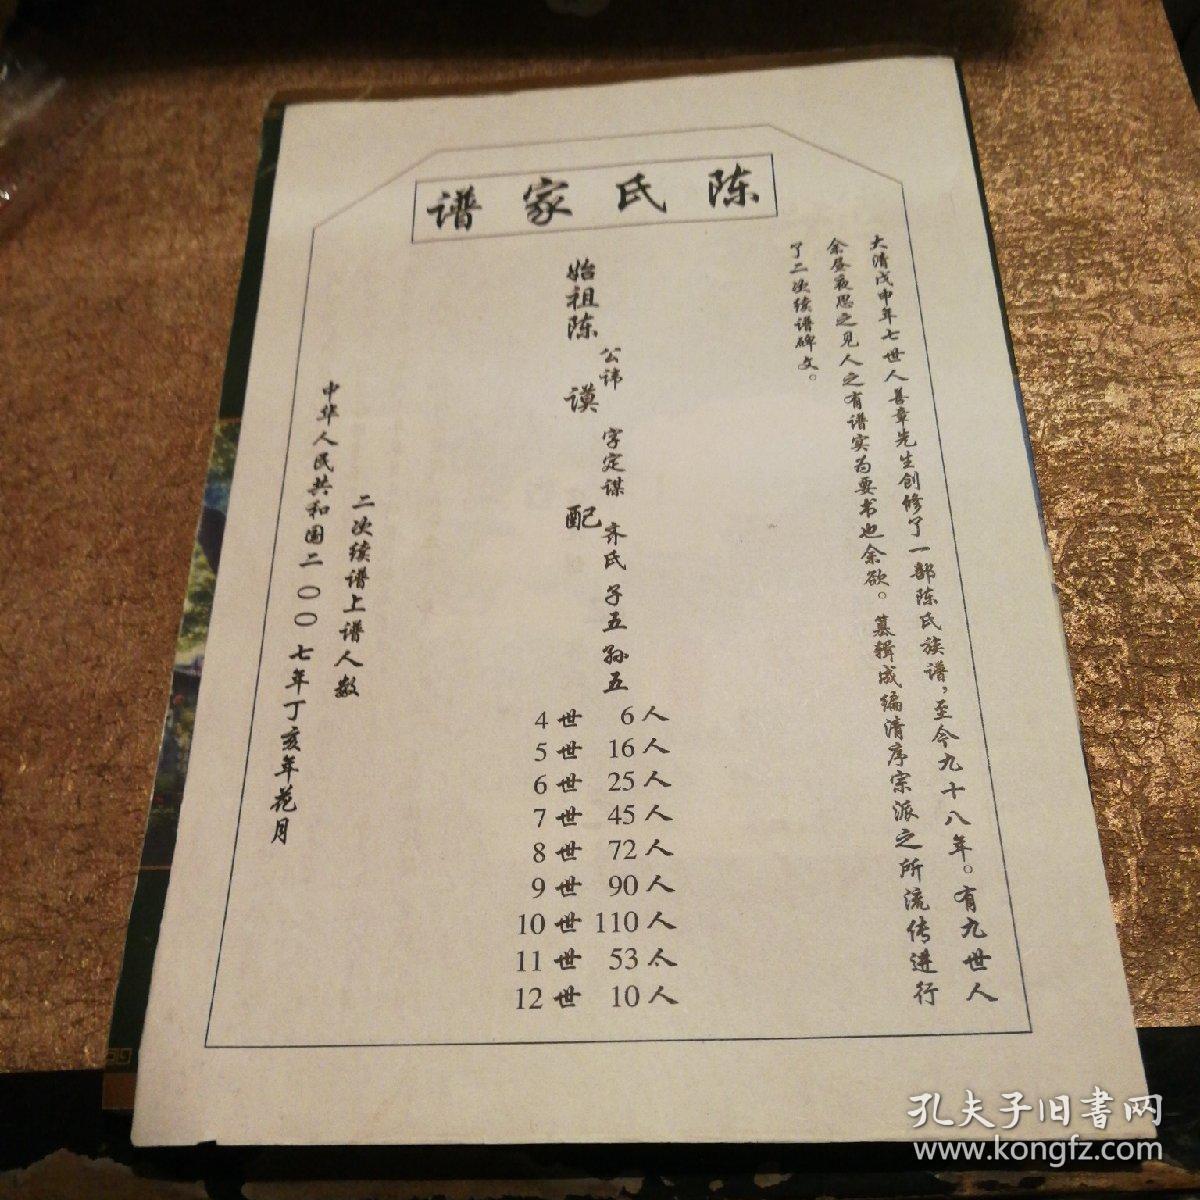 陈氏家谱
大清戊申年七世人善章先生创修了一部陈氏族谱，至今九十八年。有九世人
余昼夜思之见人之有谱实为要书也余欲。慕辑成编清序宗派之所流传进行
了二次续谱碑文。
始祖陈公讳谟字定谋配亓氏子五孙五
4世 6人
5世 16人
6世 25人
7世 45人
8世 72人
9世 90人
10世 110人
11世 53人
12世 10人
二次续谱上谱人数
中华人民共和国二〇〇七年丁亥年花月
孔夫子旧书网
www.kongfz.com